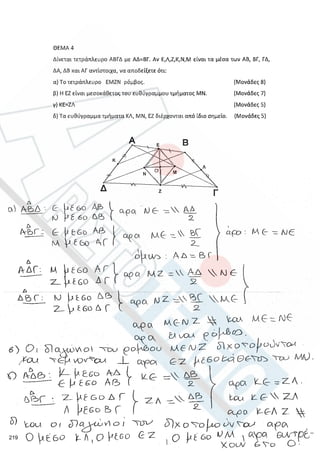 ΘΕΜΑ 4
Δίνεται τετράπλευρο ΑΒΓΔ με ΑΔ=ΒΓ. Αν Ε,Λ,Ζ,Κ,Ν,Μ είναι τα μέσα των ΑΒ, ΒΓ, ΓΔ,
ΔΑ, ΔΒ και ΑΓ αντίστοιχα, να αποδείξετε ότι:
α) Το τετράπλευρο ΕΜΖΝ ρόμβος. (Μονάδες 8)
β) Η ΕΖ είναι μεσοκάθετος του ευθύγραμμου τμήματος ΜΝ. (Μονάδες 7)
γ) ΚΕ=ΖΛ (Μονάδες 5)
δ) Τα ευθύγραμμα τμήματα ΚΛ, ΜΝ, ΕΖ διέρχονται από ίδιο σημείο. (Μονάδες 5)
Α Ε Β
Κ Λ
Ν Ο Μ
Δ Ζ Γ
α) ΑΒΔ: Ε μέσο ΑΒ
Ν μέσο ΔΒ } άρα ΝΕ =// ΑΔ/2
ΑΒΓ: Ε μέσο ΑΒ
Μ μέσο ΑΓ } άρα ΜΕ =// ΒΓ/2
όμως: ΑΔ=ΒΓ } άρα: ΜΕ=ΝΕ
ΑΔΓ: Μ μέσο ΑΓ
Ζ μέσο ΔΓ } άρα ΜΖ =// ΑΔ/2 =// ΝΕ
ΔΒΓ: Ν μέσο ΔΒ
Ζ μέσο ΔΓ } άρα ΝΖ =// ΒΓ/2 =// ΜΕ
άρα ΜΕΝΖ # και ΜΕ=ΝΕ
άρα είναι ρόμβος.
β) Οι διαγώνιοι του ρόμβου ΜΕΝΖ διχοτομούνται
και τέμνονται ⊥ άρα ΕΖ μεσοκάθετος του ΜΝ.
γ) ΑΔΒ: Κ μέσο ΑΔ
Ε μέσο ΑΒ } ΚΕ =// ΔΒ/2
ΔΒΓ: Ζ μέσο ΔΓ
Λ μέσο ΒΓ } ΖΛ =// ΔΒ/2
άρα ΚΕ=ΖΛ.
και ΚΕ // ΖΛ
άρα ΚΕΛΖ #
δ) και οι διαγώνιοί του διχοτομούνται άρα
219 Ο μέσο ΚΛ, Ο μέσο ΕΖ, Ο μέσο ΝΜ, άρα συντρέ-
χουν στο Ο.